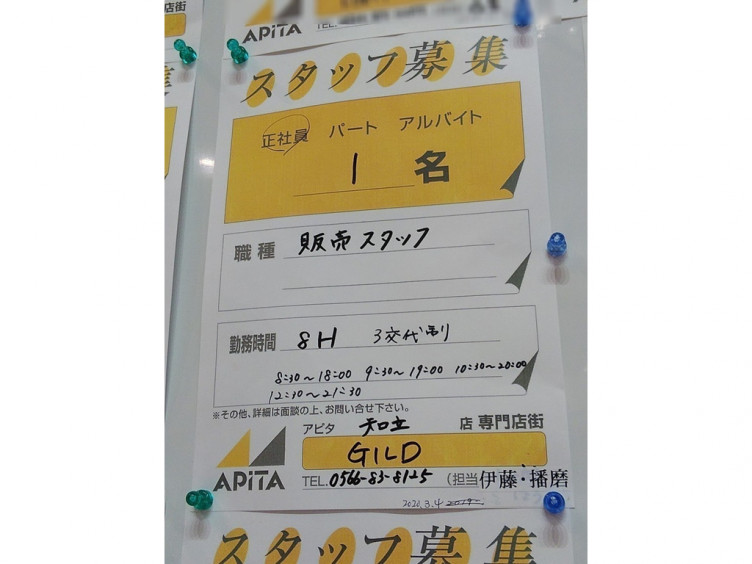 店街
APiTA
TEL.
スタッフ募集
正社員 パート アルバイト
1 名
職種 販売スタッフ
勤務時間 8H 3交代制
8:30～18:00 9:30～19:00 10:30～20:00
12:30～21:30
※その他、詳細は面談の上、お問い合せ下さい。
アピタ 知立 店 専門店街
GILD
APiTA TEL.0566-83-8125 (担当 伊藤・播磨
スタッフ募集